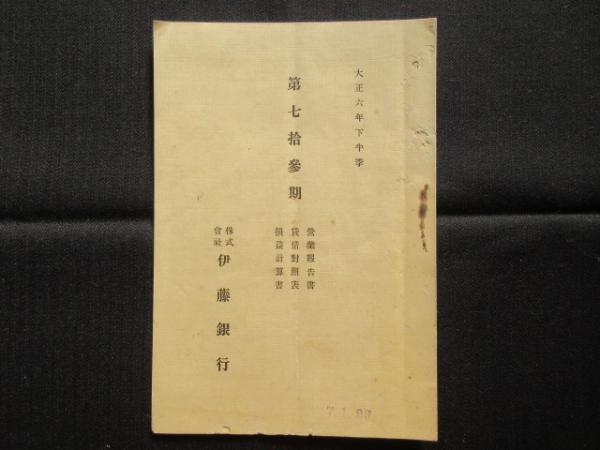 大正六年下半季
第七拾參期
營業報告書
貸借對照表
損益計算書
株式會社
伊藤銀行
7.1.23